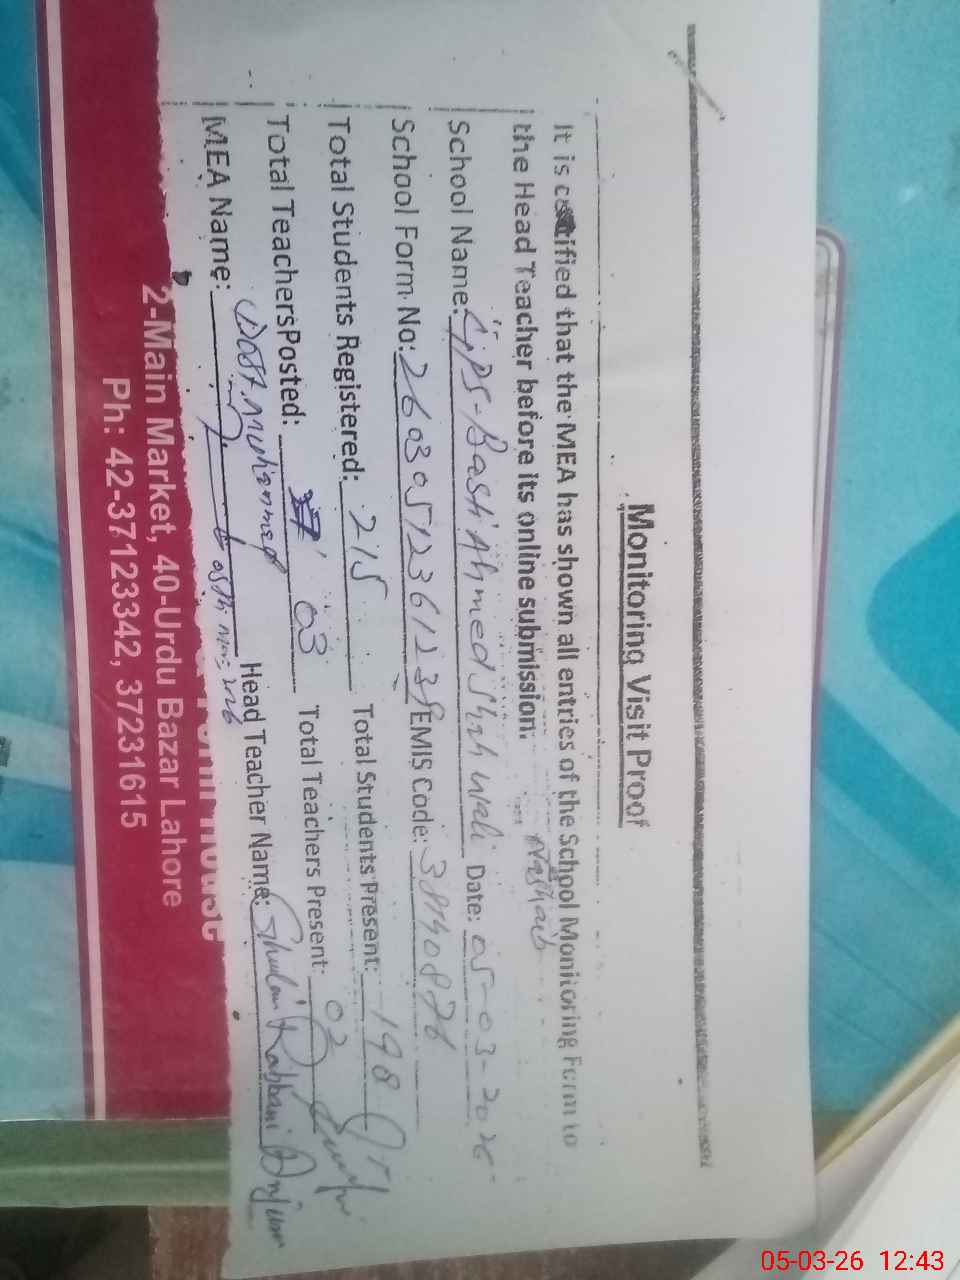 Monitoring Visit Proof
It is certified that the MEA has shown all entries of the School Monitoring Form to
the Head Teacher before its online submission.
Nashaib
School Name: GPS-Basti Ahmed Shah Wali Date: 05-03-2026
School Form No: EMIS Code:
Total Students Registered: 215 Total Students Present: 198
Total Teachers Posted: 03 Total Teachers Present: 02
MEA Name: Dost Muhammad Head Teacher Name: Ghulam Rabbani Anjum
05th Mar, 2026
2-Main Market, 40-Urdu Bazar Lahore
Ph: 42-37123342, 37231615
05-03-26 12:43